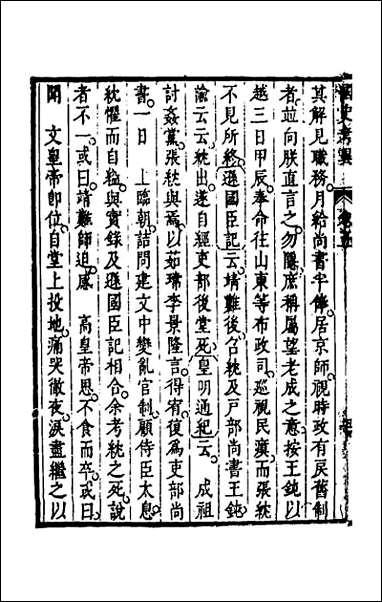 國史考異
其解見職務月給尚書半俸居京師視時政有戾舊制
者並向朕直言之勿隱庶稱屬望老成之意按王鈍以
越三日甲辰奉命往山東等布政司巡視民瘼而張紞
不見所終遜國臣記云靖難後召紞及戸部尚書王鈍
諭云云紞出遂自經吏部後堂死皇明通紀云　成祖
討姦黨張紞與焉以茹瑺李景隆言得宥復爲吏部尚
書一日　上臨朝詰問建文中變亂官制顧侍臣太息
紞懼而自縊與實錄及遜國臣記相合余考紞之死說
者不一或曰靖難師迫感　高皇帝恩不食而卒或曰
聞　文皇帝卽位自堂上投地痛哭徹夜淚盡繼之以